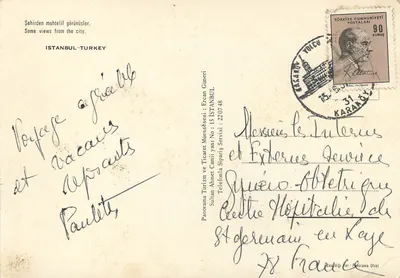 Şehirden muhtelif görünüşler.
Some views from the city.
ISTANBUL-TURKEY
Voyage agréable
et vacances
reposantes
Paulette
Panorama Turizm ve Ticaret Müessesesi : Ercan Güneri
Sultan Ahmet Camii yanı No : 15 İSTANBUL
Telefonla Sipariş Servisi : 22 07 48
TÜRKİYE CUMHURİYETİ
POSTALARI
90
KURUŞ
K. Atatürk
YOLCU
KARAKÖY
Messieurs les Internes
et Externes Service
Gynéco-Obstétrique
Centre Hospitalier de
St Germain en Laye
78 France